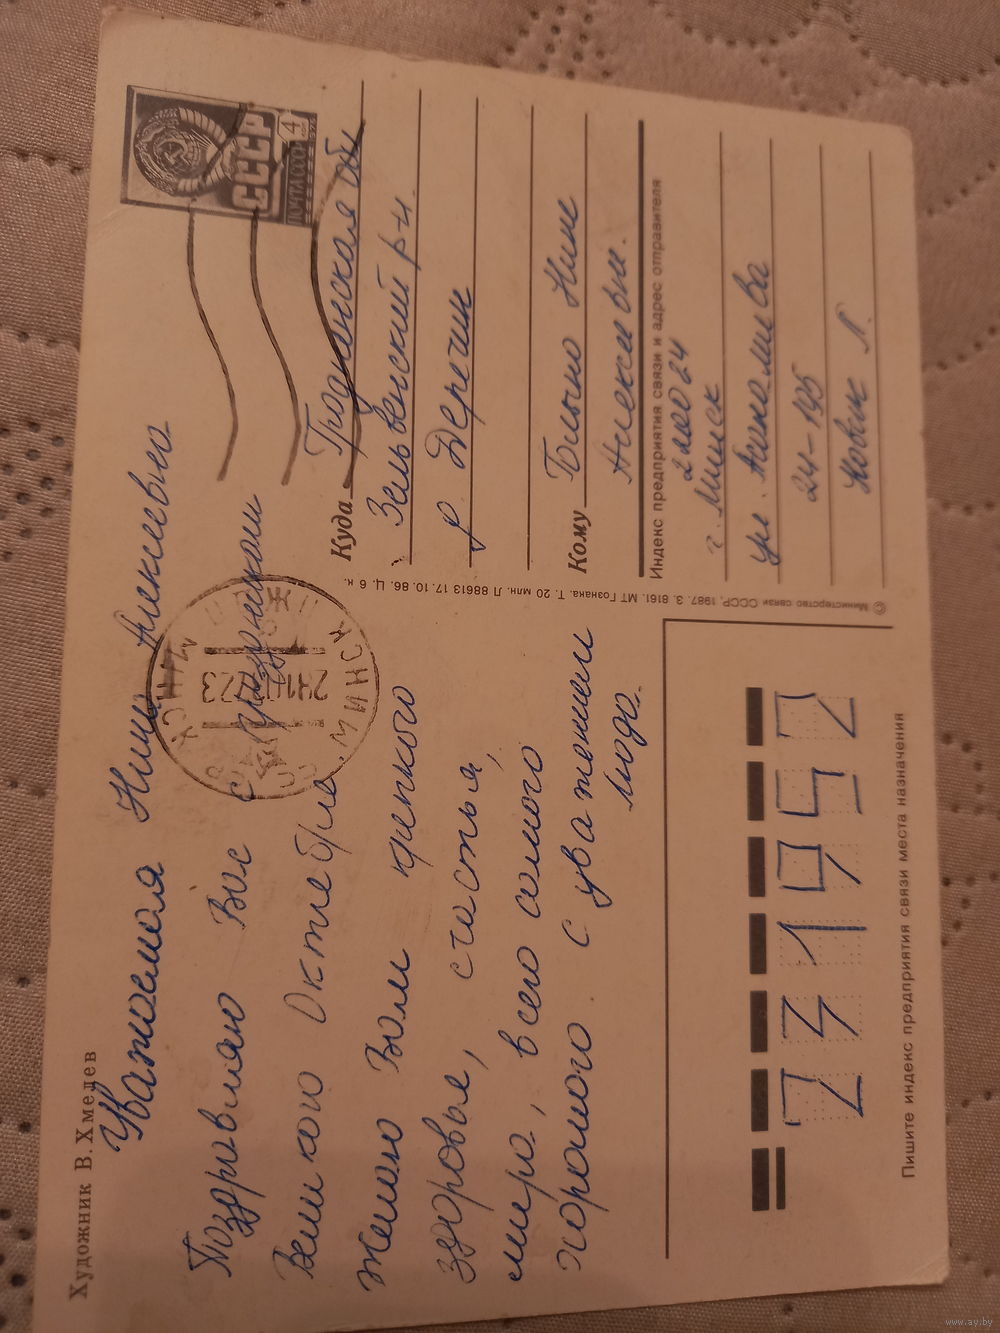 Художник В. Хмелев
Уважаемая Нина Алексеевна
Поздравляю Вас с праздником
Великого Октября.
Желаю Вам крепкого
здоровья, счастья,
мира, всего самого
хорошего с уважением
Люда.
СССР
4
ПОЧТА СССР
МИНСК
МИНСК
Куда Гродненская об
Зельвенский р-н.
д. Деречин
Кому
Нине
Алексеевне.
Индекс предприятия связи и адрес отправителя
г. Минск
ул.
24-195
Новик Л.
© Министерство связи СССР, 1987. З. 8161. МТ Гознака. Т. 20 млн. Л 88613 17.10.86. Ц. 6 к.
231952
Пишите индекс предприятия связи места назначения
www.ay.by